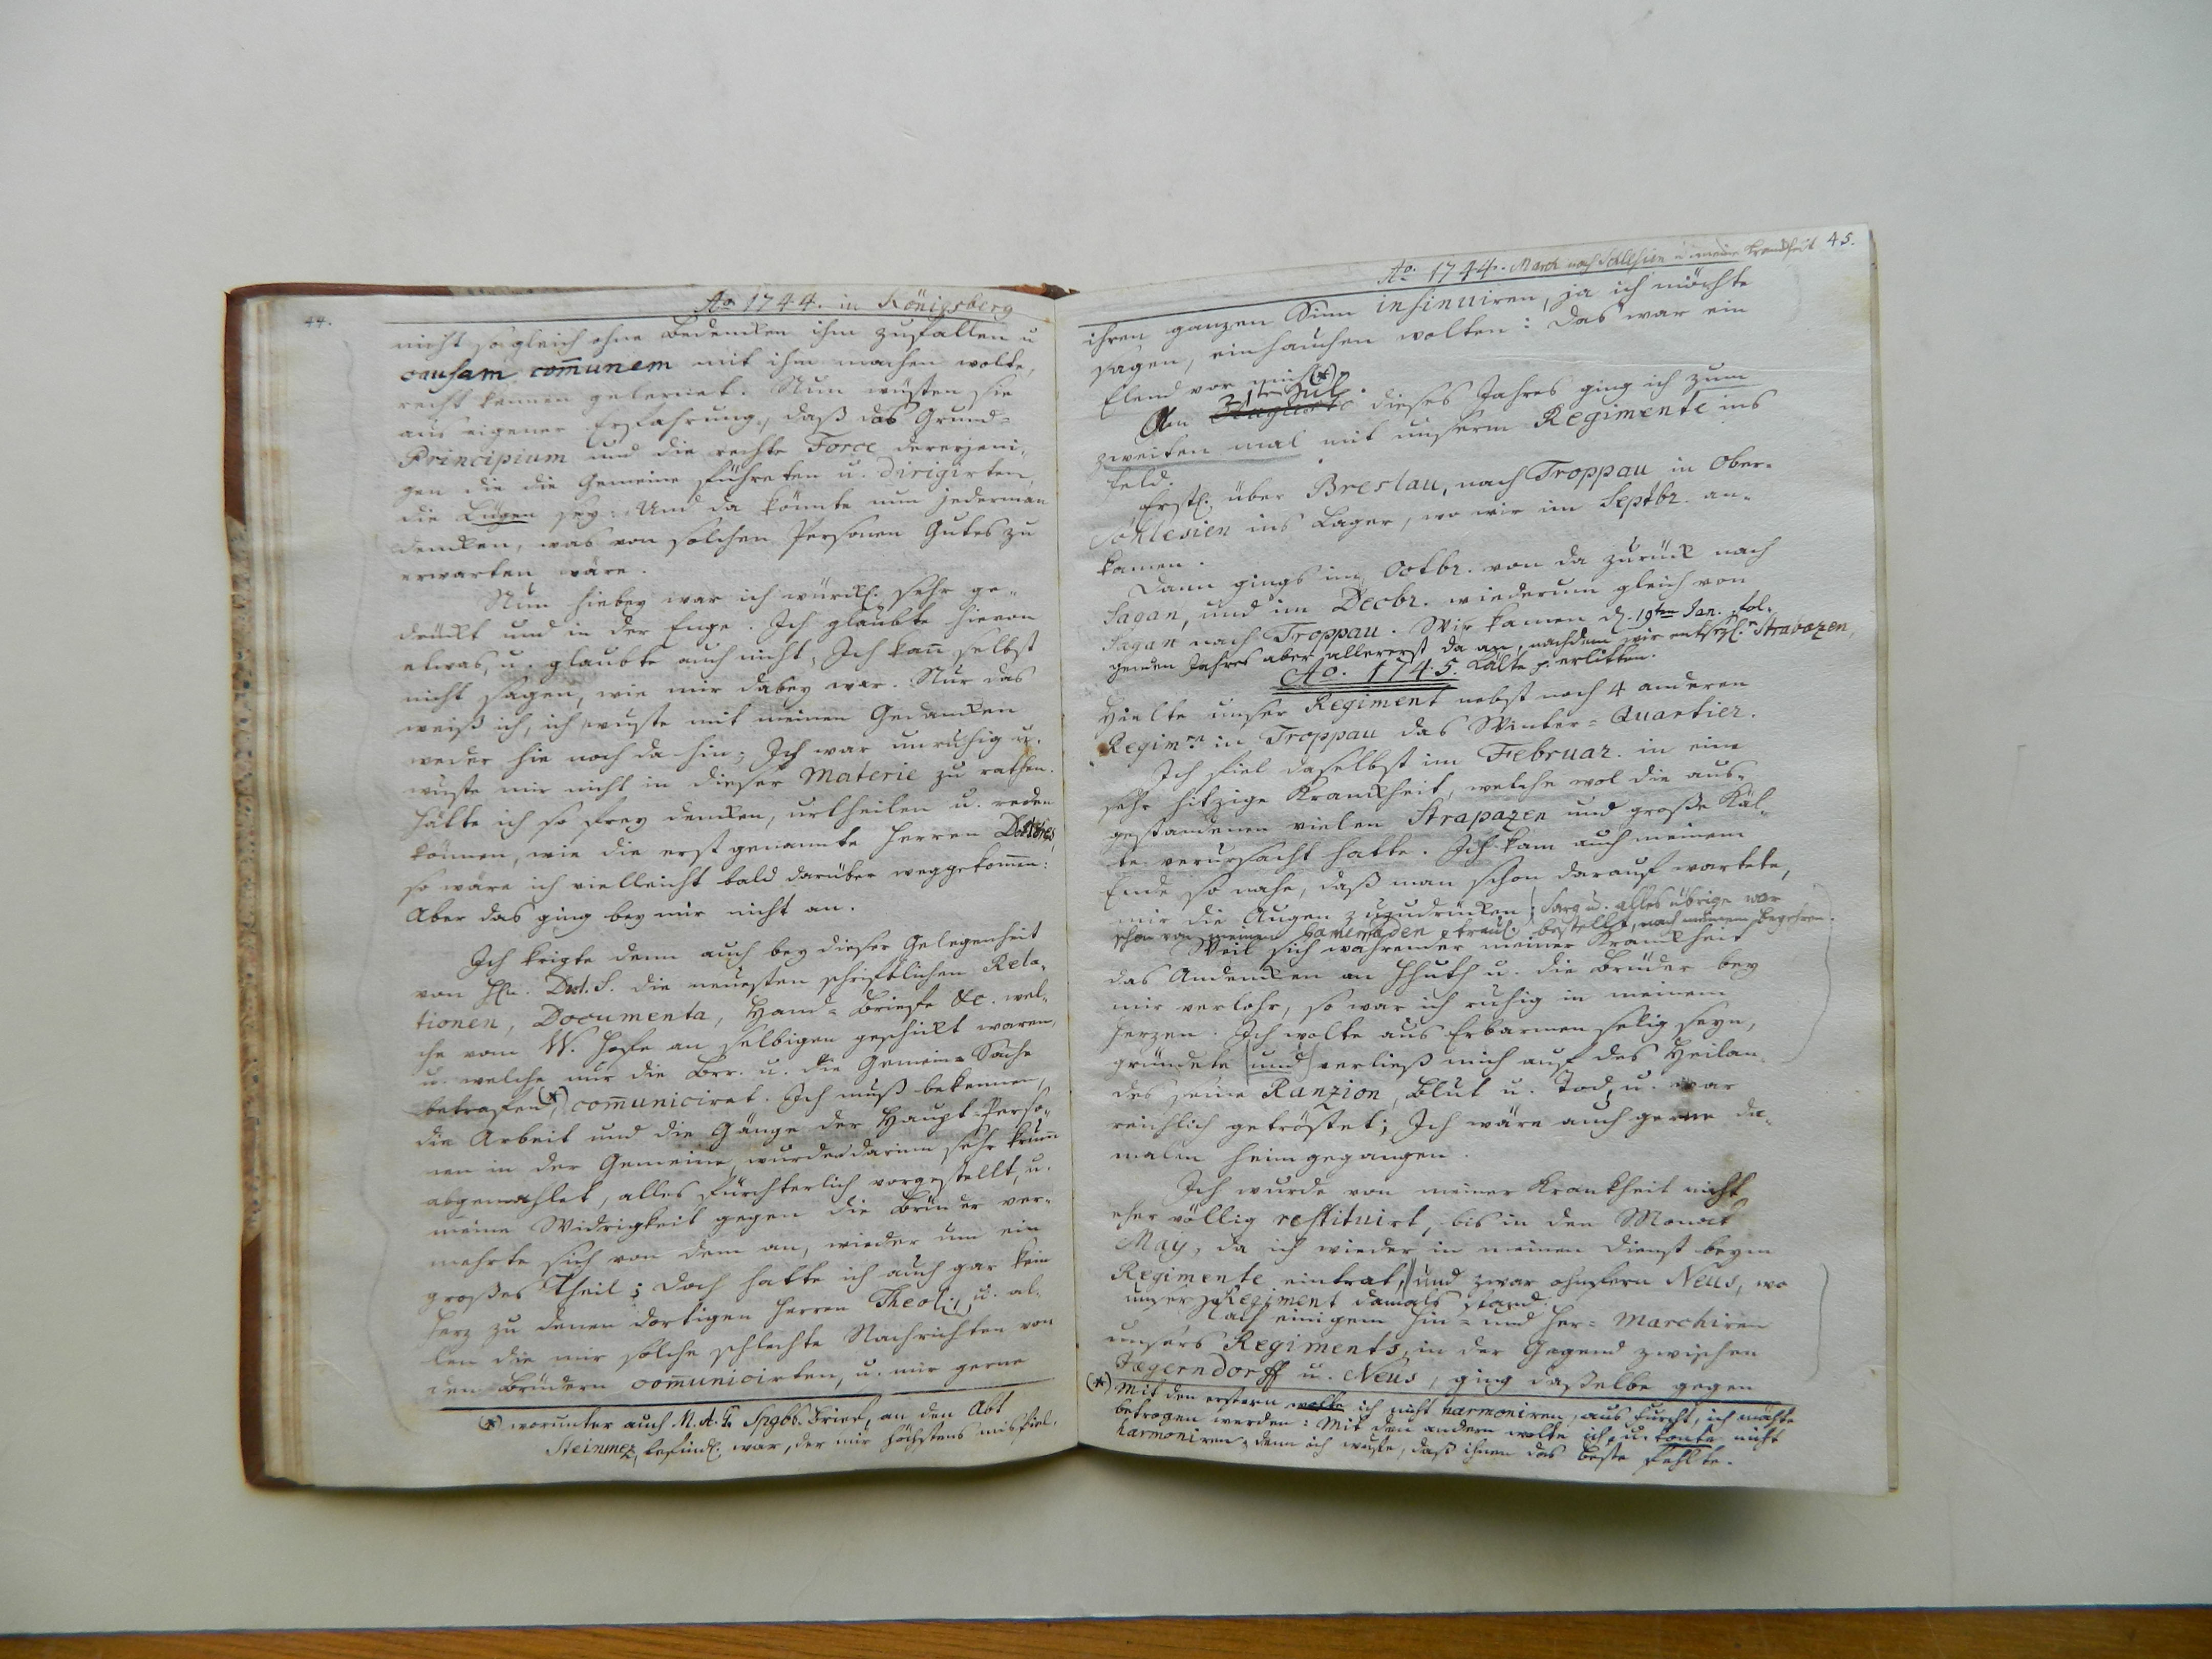 44.
Ao 1744. in Königsberg
nicht sogleich ohne Bedencken ihm zufallen u
causam com̄unem mit ihm machen wolte,
recht kennen gelernet. Nun wüsten sie
aus eigener Erfahrung, daß das Grund=
Principium und die rechte Force dererjeni-
gen die die Gemeine führeten u. dirigirten,
die Lügen sey: Und da könnte nun jederman
dencken, was von solchen Personen Gutes zu
erwarten wäre.
Nun hiebey war ich würckl. sehr ge-
drückt und in der Enge. Ich glaubte hievon
etwas, u. glaubte auch nicht; Ich kan̄ selbst
nicht sagen, wie mir dabey war. Nur das
weiß ich, ich wuste mit meinen Gedancken
weder hie noch da hin; Ich war unruhig u.
wuste mir nicht in dieser Materie zu rathen.
Hätte ich so frey dencken, urtheilen u. reden
können, wie die erst genannte Herren
so wäre ich vielleicht bald darüber weggekom̄en:
Aber das ging bey mir nicht an.
Ich krigte denn auch bey dieser Gelegenheit
von Hn. Doct. S. die neuesten schriftlichen Rela-
tionen, Documenta, Hand=Briefe &c. wel-
che vom W. Hofe an selbigen geschickt waren,
u. welche nur die Brr. u. die Gemein=Sache
betrafen, (*) com̄uniciret. Ich muß bekennen,
die Arbeit und die Gänge der Haupt=Perso-
nen in der Gemeine wurden darinn sehr krum̄
abgemahlet, alles fürchterlich vorgestellt, u.
meine Widrigkeit gegen die Brüder ver-
mehrte sich von dem an, wieder um ein
großes Theil; doch hatte ich auch gar kein
Herz zu denen dortigen Herren Theol:, u. al-
len die mir solche schlechte Nachrichten von
den Brüdern com̄unicirten, u. mir gerne
(*) worunter auch M. A. G. Spgbs. Brief, an den Abt
Steinmez, befindl. war, der mir höchstens misfiel.
Ao. 1744. March nach Schlesien u meine Kranckheit 45.
ihren ganzen Sinn insinuiren, ja ich möchte
sagen, einhauchen wolten: Das war ein
Elend vor mich (*)
Am 21ten Jul. dieses Jahres ging ich zum
zweiten mal mit unserm Regimente ins
Feld.
Erstl. über Breslau, nach Troppau in Ober=
Schlesien ins Lager, wo wir im Septbr. an-
kamen.
Dann gings im Octbr. von da zurück nach
Sagan, und im Decbr. wiederum gleich von
Sagan nach Troppau. Wir kamen d. 19ten Jan. fol-
genden Jahres aber allererst da an, nachdem wir entsezl.n Strabazen,
Ao. 1745. Kälte p erlitten.
Hielte unser Regiment nebst noch 4 anderen
Regimrn in Troppau das Winter=Quartier.
Ich fiel daselbst im Februar. in eine
sehr hitzige Kranckheit, welche wol die aus-
gestandenen vielen Strapazen und große Käl-
te verursacht hatte. Ich kam auch meinem
Ende so nahe, daß man schon darauf wartete,
mir die Augen zuzudrücken; Sarg u. alles übrige war
schon von meinen Cameraden bestellt, nach meinem Begehren.
Weil sich währender meiner Kranckheit
das Andencken an Hhuth u. die Brüder bey
mir verlohr, so war ich ruhig in meinem
Herzen. Ich wolte aus Erbarmen selig seyn,
gründete und verließ mich auf des Heilan-
des seine Ranzion, Blut u. Tod, u. war
reichlich getröstet; Ich wäre auch gerne da-
malen heimgegangen.
Ich wurde von meiner Krankheit nicht
eher völlig restituirt, bis in den Monat
May, da ich wieder in meinen Dienst beym
Regimente eintrat, und zwar ohnfern Neus, wo
unser Regiment damals stand.
Nach einigem Hin= und Her=Marchiren
unsers Regiments, in der Gegend zwischen
Jægerndorff u. Neus, ging dasselbe gegen
(*) Mit den erstern wolte ich nicht harmoniren, aus Furcht, ich möchte
betrogen werden: Mit den andern wolte ich, u. konte nicht
harmoniren, denn ich wuste, daß ihnen das Beste fehlte.